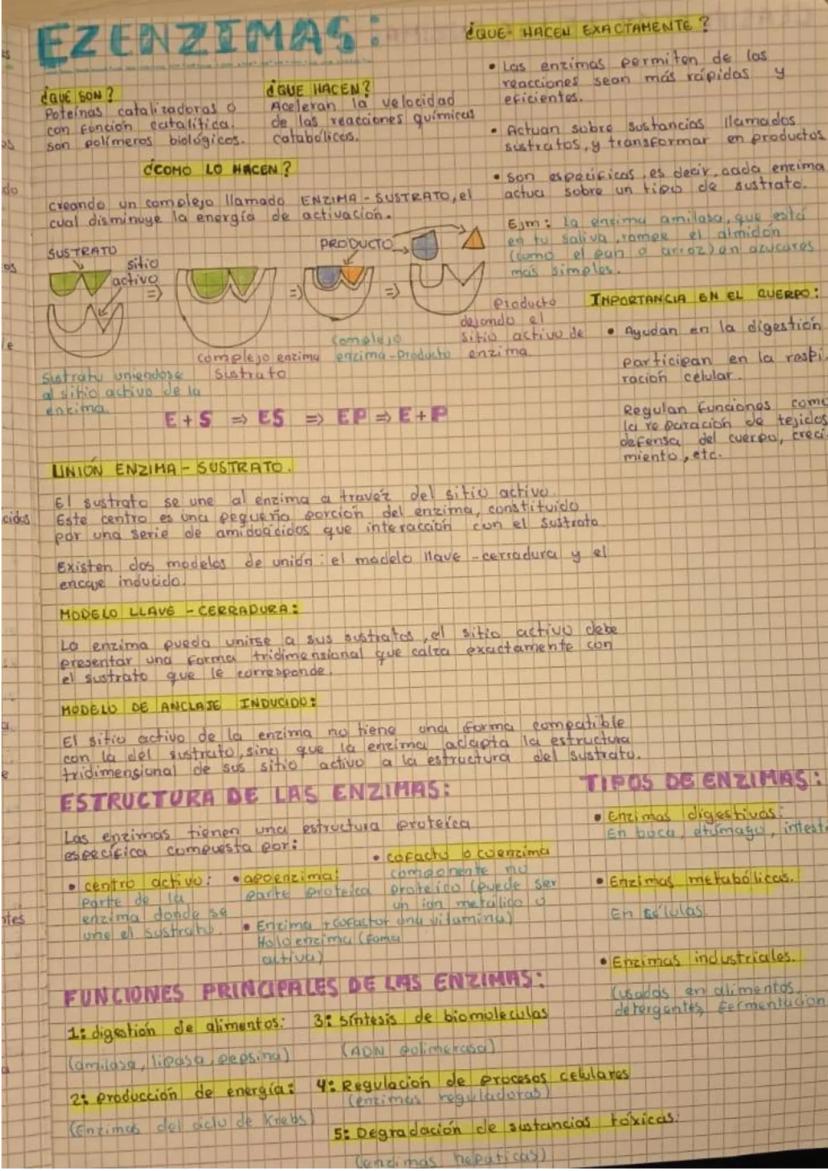 EZENZIMAS:
¿QUÉ SON?
Poteínas catalizadoras o
con función catalítica.
son polímeros biológicos.
¿QUE HACEN?
Aceleran la velocidad
de las reacciones químicas
catabólicas.
¿COMO LO HACEN?
creando un complejo llamado ENZIMA - SUSTRATO, el
cual disminuye la energía de activación.
SUSTRATO
sitio
activo
PRODUCTO
Sustrato uniendose
al sitio activo de la
enzima
complejo enzima
Sustrato
Complejo
enzima-producto
producto
dejando el
sitio activo de
enzima
E + S ⇒ ES ⇒ EP ⇒ E + P
¿QUE HACEN EXACTAMENTE?
• Las enzimas permiten de las
reacciones sean más rápidas y
eficientes.
• Actuan sobre sustancias llamados
sustratos, y transformar en productos
• son específicas, es decir, cada enzima
actua sobre un tipo de sustrato.
Ejm: la enzima amilasa, que está
en tu saliva, rompe el almidón
(como el pan o arroz) en azucares
más simples.
IMPORTANCIA EN EL CUERPO:
• Ayudan en la digestión
participan en la respi-
ración celular.
Regulan funciones como
la reparación de tejidos
defensa del cuerpo, creci-
miento, etc.
UNIÓN ENZIMA - SUSTRATO.
El sustrato se une al enzima a travéz del sitio activo.
Este centro es una pequeña porción del enzima, constituido
por una serie de amidoácidos que interacción con el sustrato
Existen dos modelos de unión: el modelo llave - cerradura y el
encaje inducido.
MODELO LLAVE - CERRADURA:
La enzima pueda unirse a sus sustratos, el sitio activo debe
presentar una forma tridimensional que calza exactamente con
el sustrato que le corresponde.
MODELO DE ANCLAJE INDUCIDO:
El sitio activo de la enzima no tiene una forma compatible
con la del sustrato, sino que la enzima adapta la estructura
tridimensional de sus sitio activo a la estructura del sustrato.
ESTRUCTURA DE LAS ENZIMAS:
Las enzimas tienen una estructura proteica
específica compuesta por:
• centro activo:
parte de la
enzima donde se
une el sustrato.
• apoenzima:
parte proteica
• Enzima + cofactor
Holoenzima (foma
activa)
• cofacto o coenzima
componente no
proteico (puede ser
un ion metálico o
una vitamina)
TIPOS DE ENZIMAS:
• Enzimas digestivas:
En boca, etómago, intest
• Enzimas metabólicas.
En células
• Enzimas industriales.
(usadas en alimentos,
detergentes, fermentación
FUNCIONES PRINCIPALES DE LAS ENZIMAS:
1: digestión de alimentos:
(amilasa, lipasa, pepsina)
2: producción de energía:
(Enzimas del ciclo de Krebs)
3: síntesis de biomoleculas
(ADN polimerasa)
4: Regulación de procesos celulares
(enzimas reguladoras)
5: Degradación de sustancias tóxicas:
(endimas hepáticas)